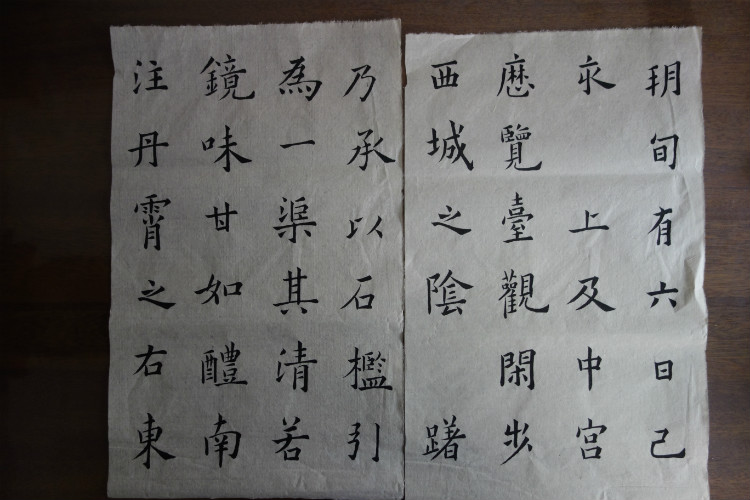 朔旬有六日己
亥 上及中宫
歷覽臺觀閑步
西城之陰 躇
乃承以石檻引
為一渠其清若
鏡味甘如醴南
注丹霄之右東